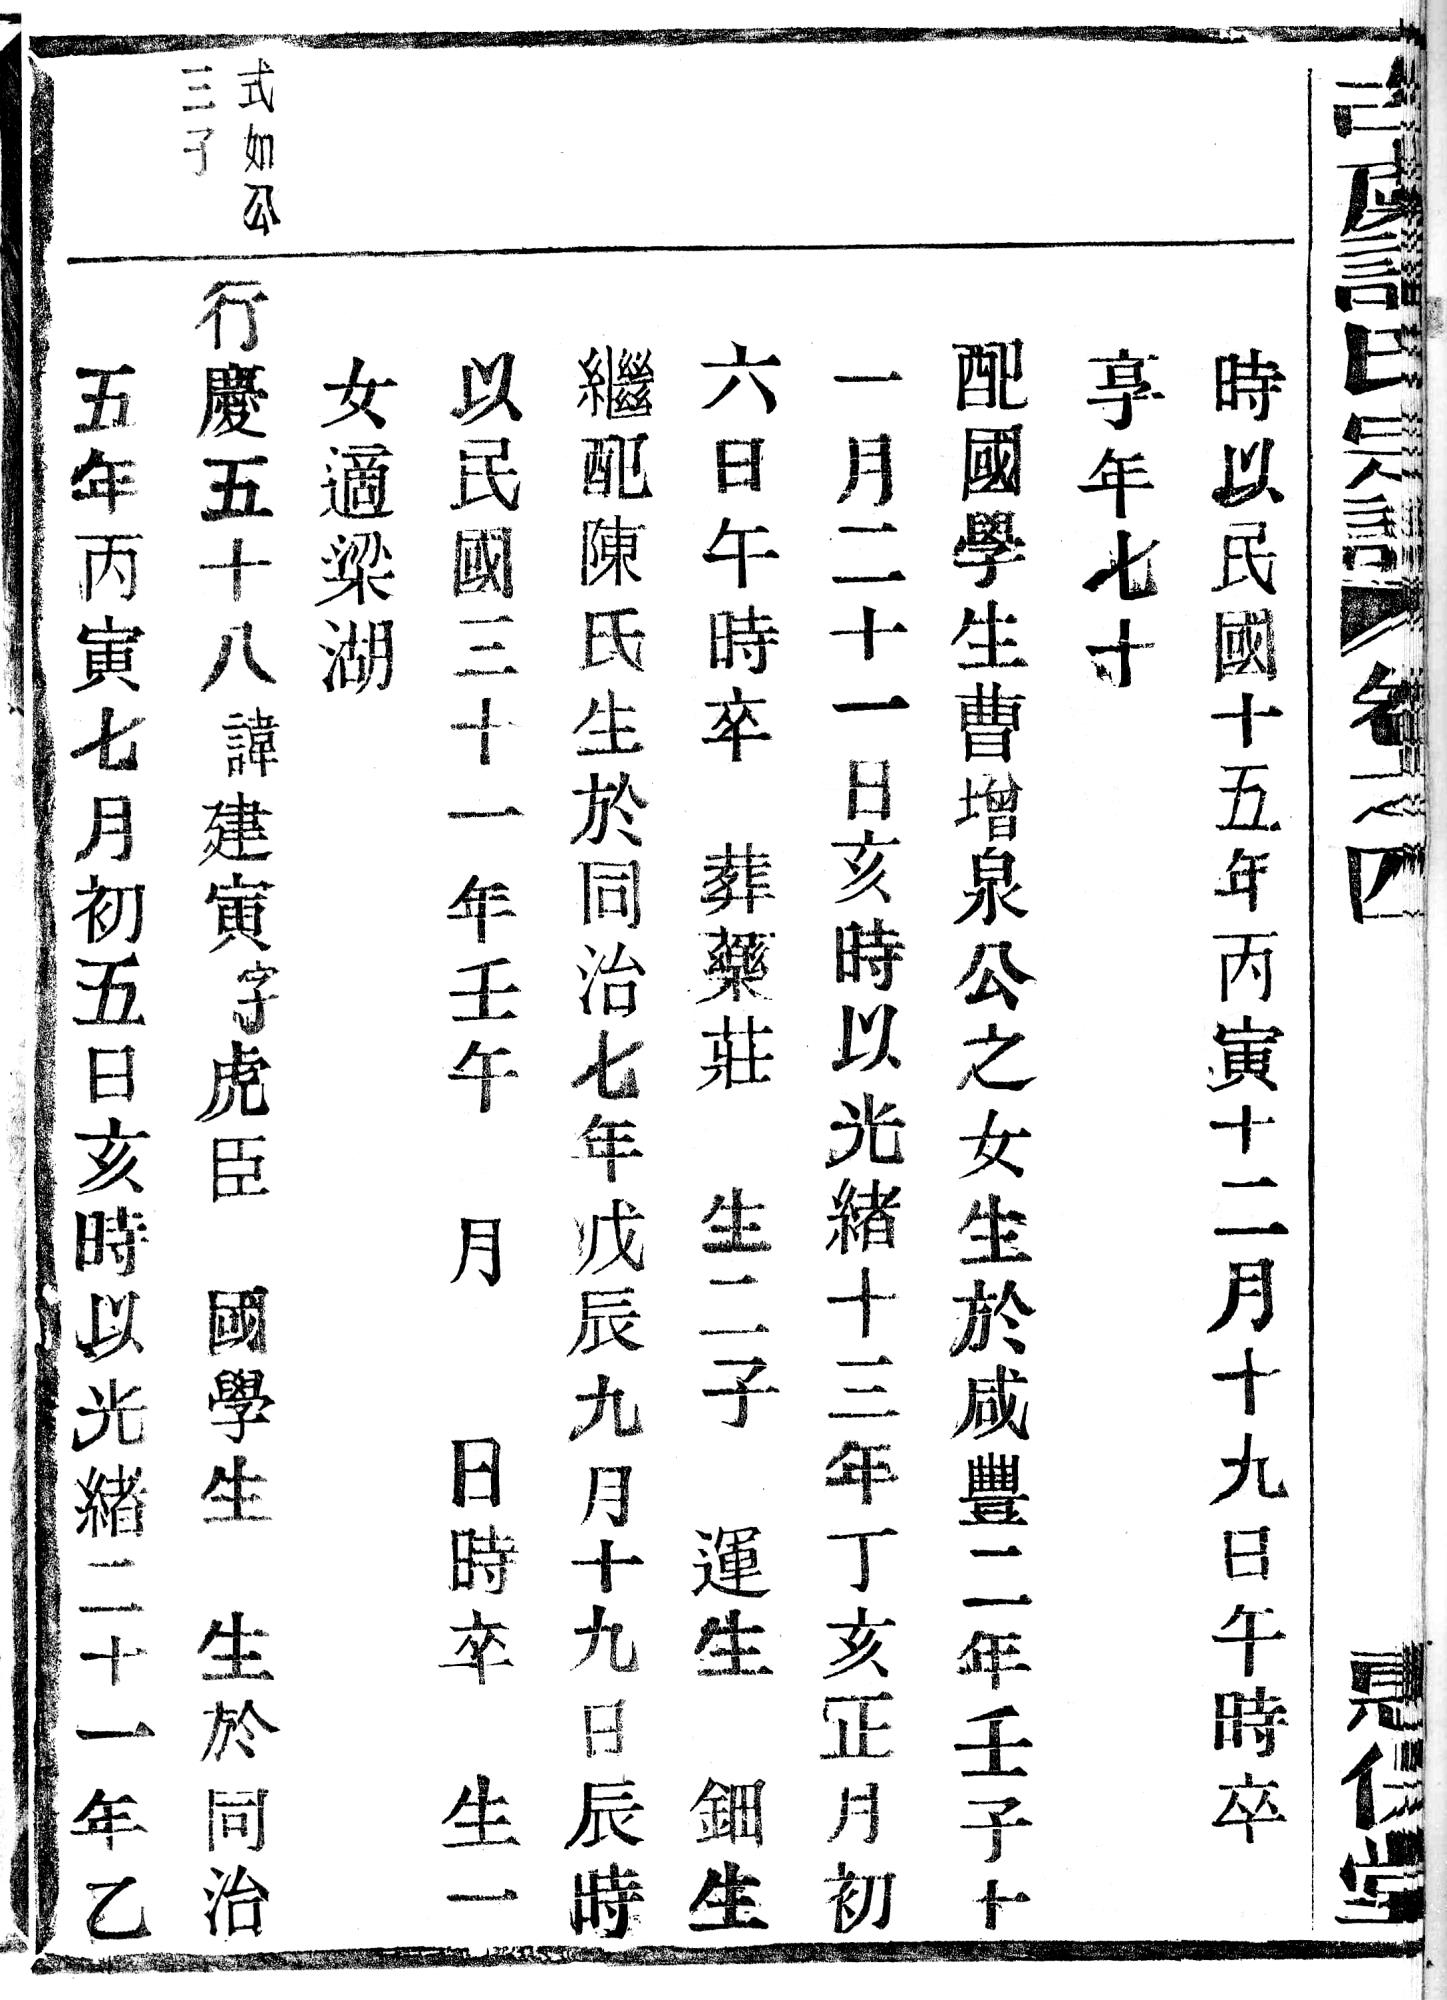 氏宗譜
卷
四
堂
時以民國十五年丙寅十二月十九日午時卒
享年七十
配國學生曹增泉公之女生於咸豐二年壬子十
一月二十一日亥時以光緒十三年丁亥正月初
六日午時卒 葬藥莊 生二子 運生 鈿生
繼配陳氏生於同治七年戊辰九月十九日辰時
以民國三十一年壬午 月 日時卒 生一
女適梁湖
式如公
三子
行慶五十八諱建寅字虎臣 國學生 生於同治
五年丙寅七月初五日亥時以光緒二十一年乙